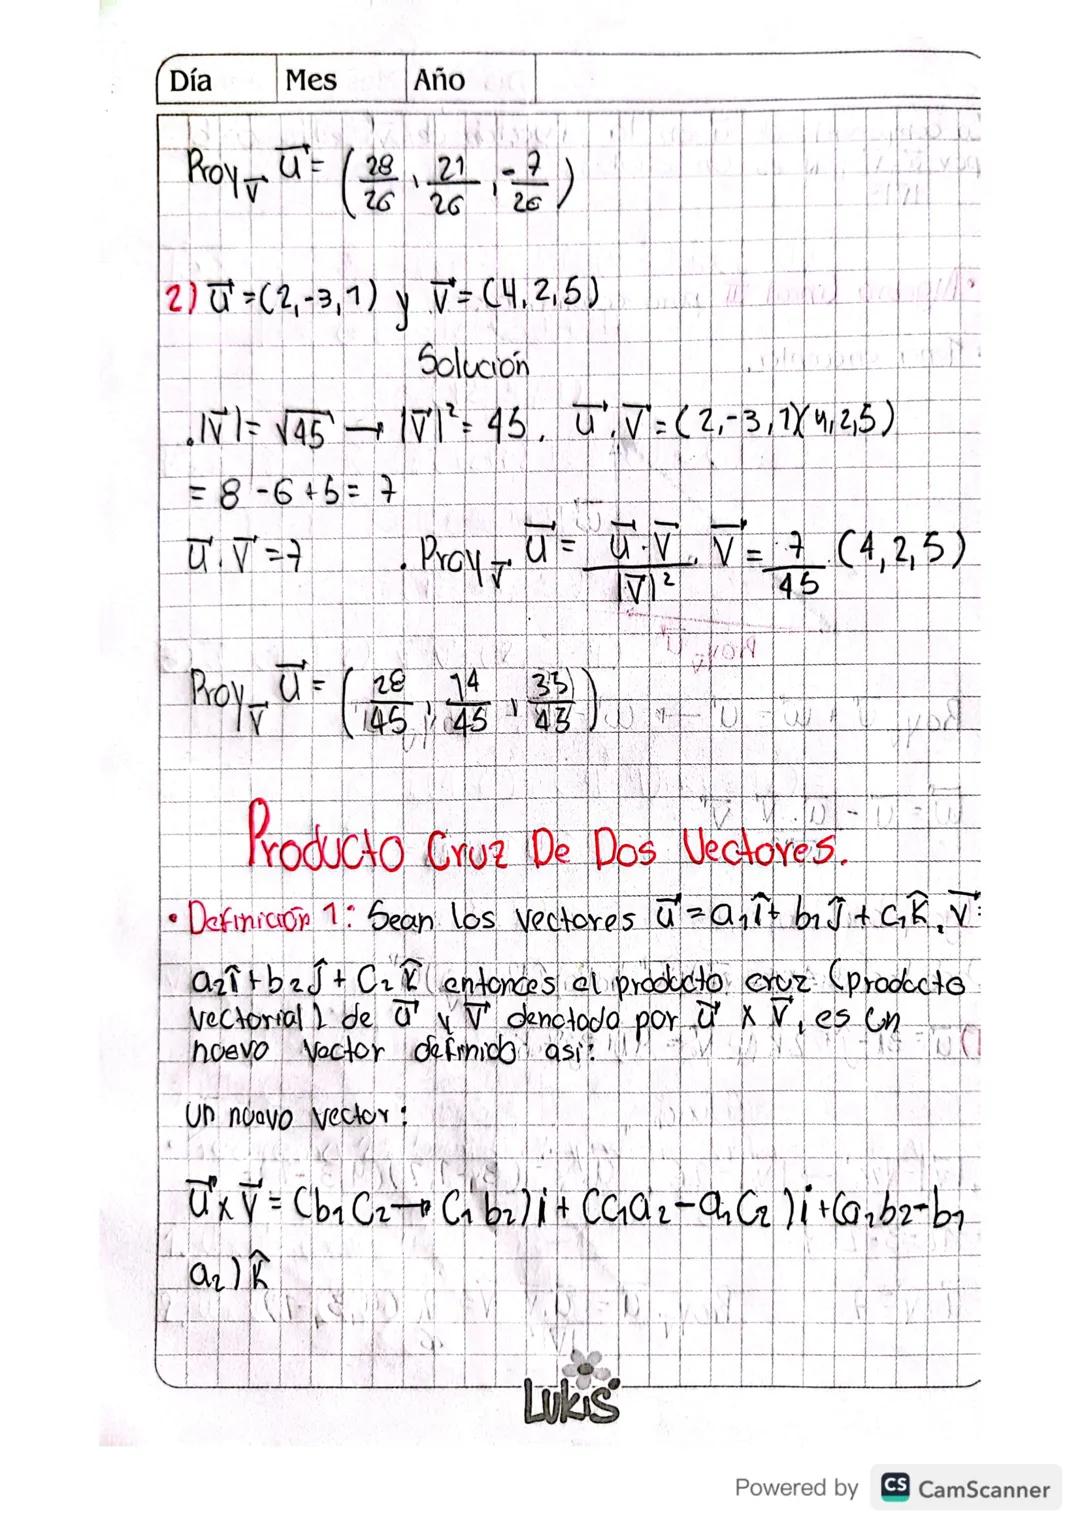 Día Mes Año
Proy_v⃗ u⃗ = (28/26, 21/26, -7/26)
2) u⃗ = (2,-3,1) y v⃗ = (4,2,5)
Solución
. |v⃗| = √45 → |v⃗|² = 45. u⃗.v⃗ = (2,-3,1)(4,2,5)
= 8 -6 +5 = 7
u⃗.v⃗ = 7 . Proy_v⃗ u⃗ = u⃗.v⃗/|v⃗|² . v⃗ = 7/45 . (4,2,5)
Proy_v⃗ u⃗ = (28/45, 14/45, 35/45)
Producto Cruz De Dos Vectores.
• Definición 1: Sean los vectores u⃗ = a₁î + b₁ĵ + c₁k̂, v⃗ =
a₂î + b₂ĵ + C₂k̂ entonces el producto cruz (producto
vectorial) de u⃗ y v⃗ denotado por u⃗ x v⃗, es un
nuevo vector definido así:
Un nuevo vector:
u⃗ x v⃗ = (b₁C₂ → C₁b₂)i + (C₁a₂ - a₁C₂)i + (a₁b₂ - b₁
a₂)k̂
Lukis
Powered by CS CamScanner